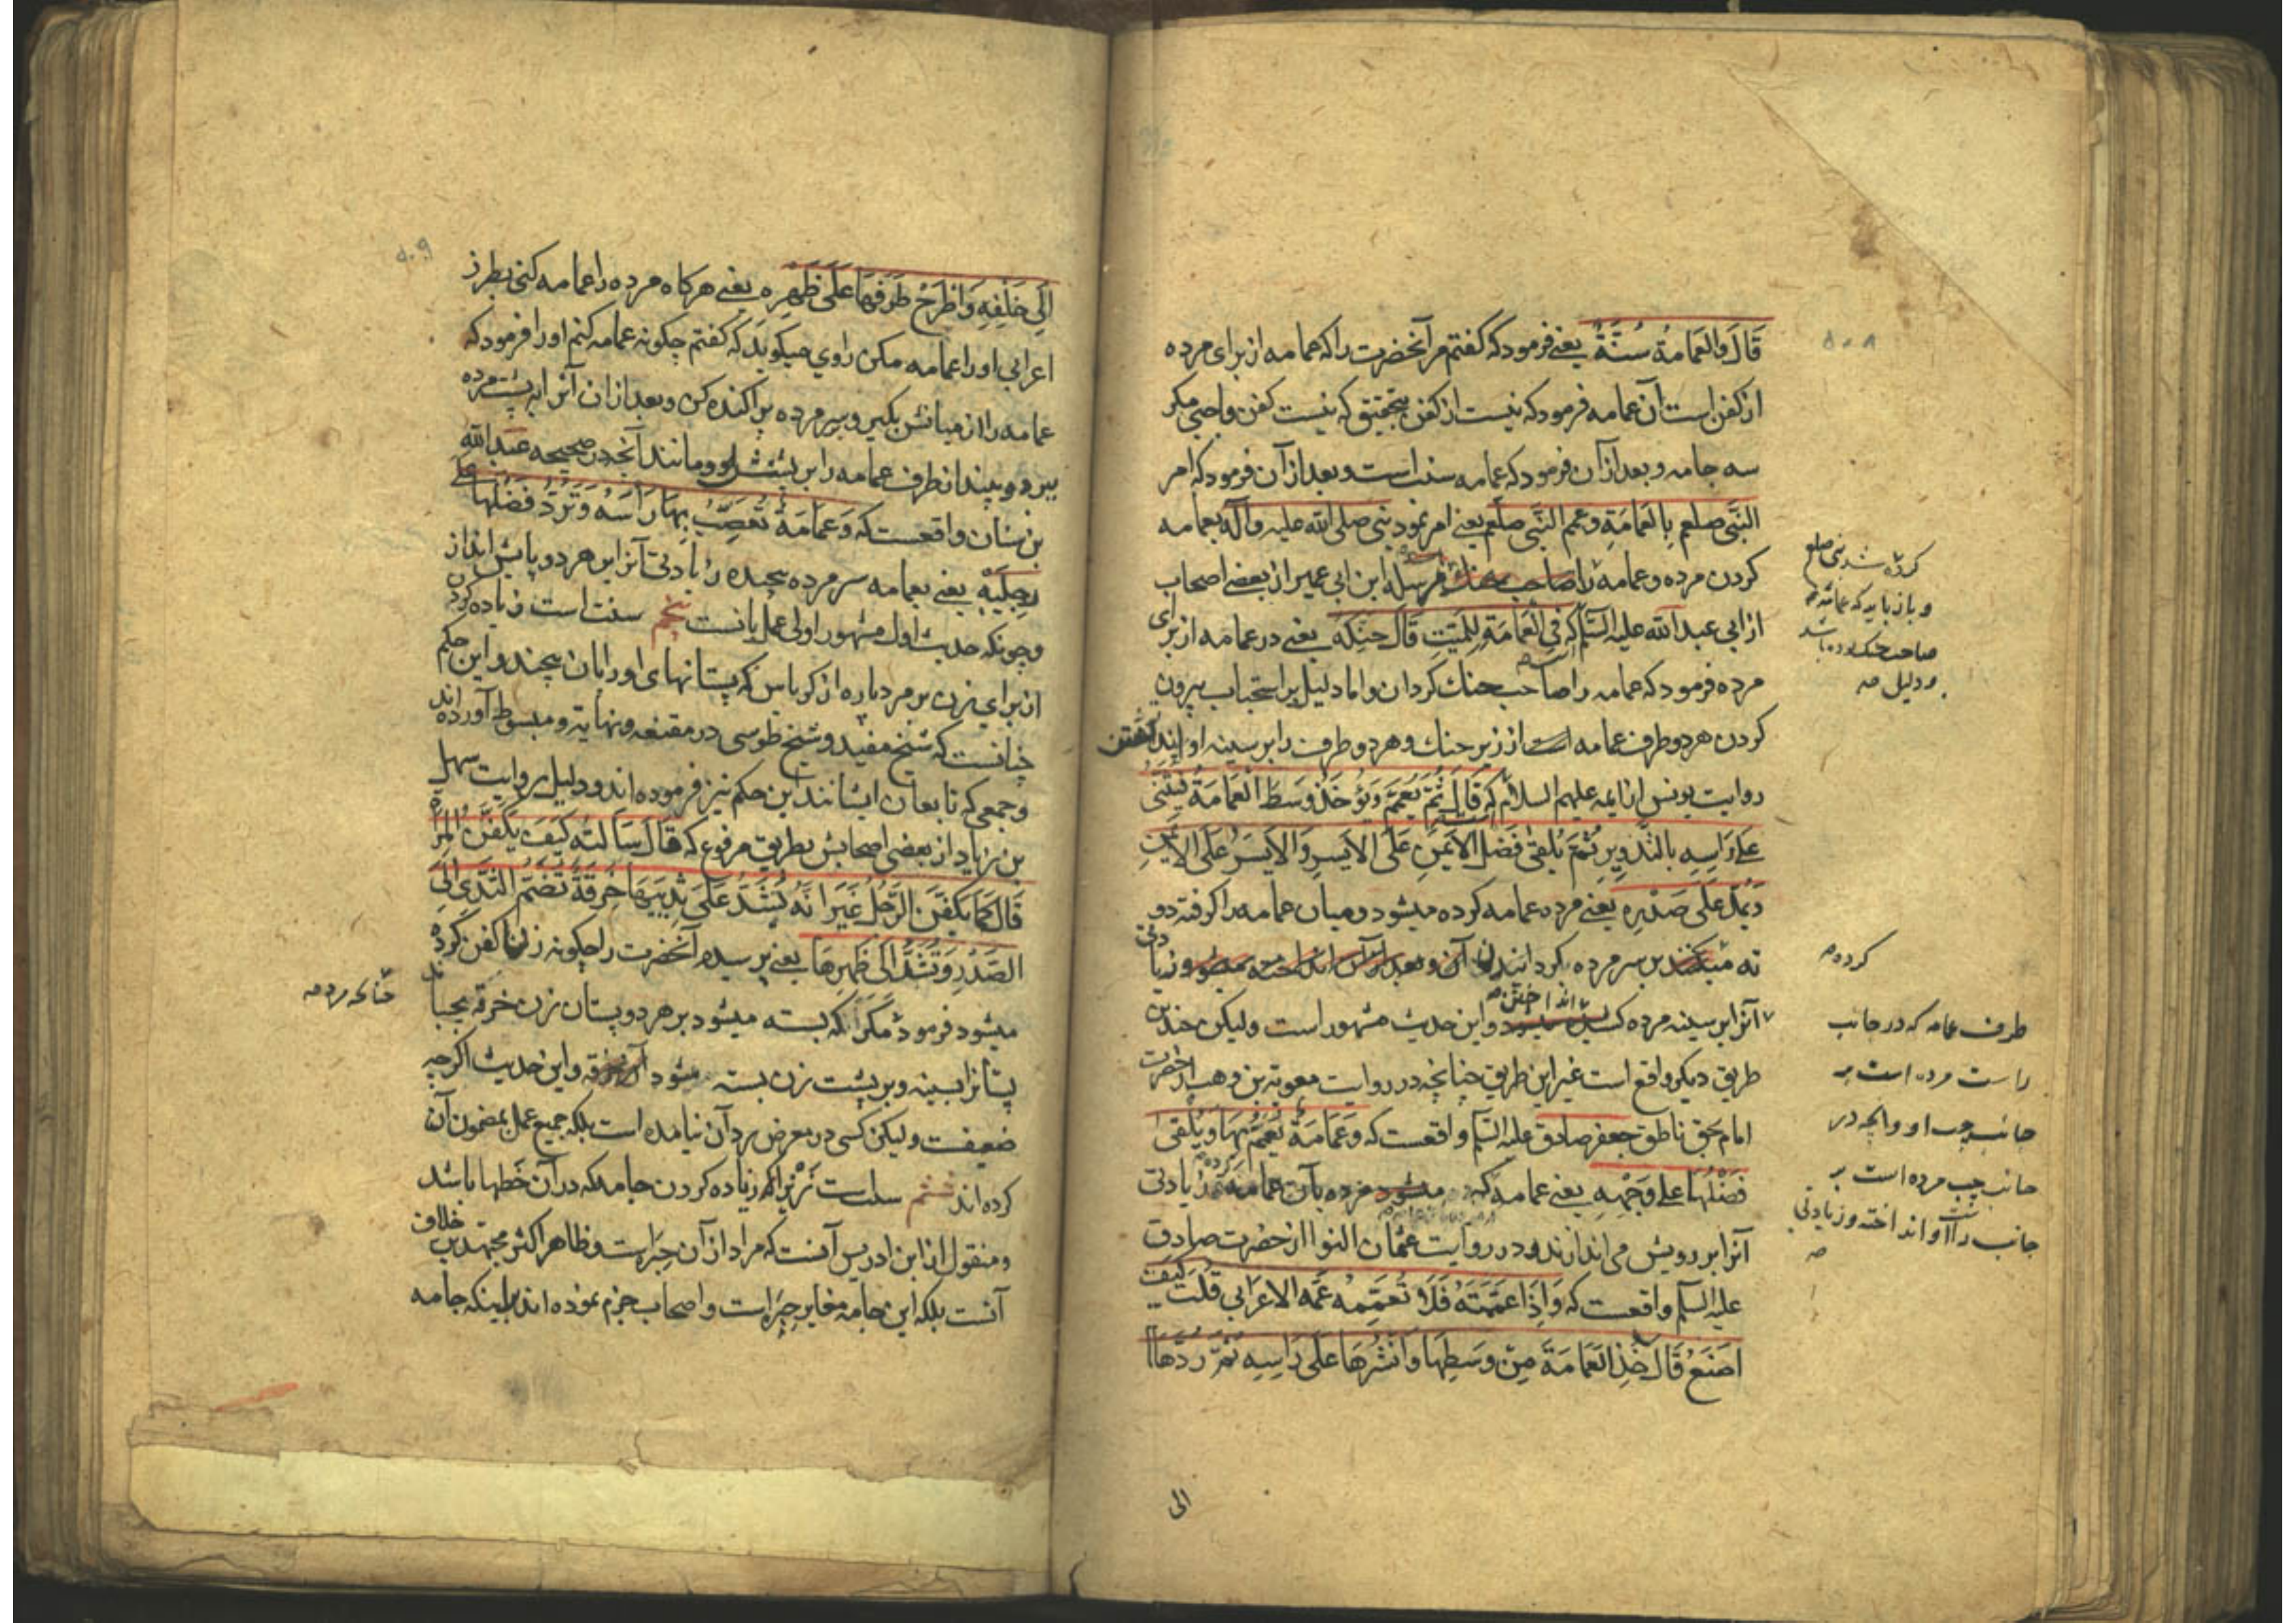 ۵۰۸
قَالَ وَالعَمامةُ سُنَّةٌ یعنے فرمود که کفتم مر آنحضرت را که عمامه از برای مرده
از کفن است آن عمامه فرمود که نیست از کفن بتحقیق که نیست کفن واجبی مکر
سه جامه و بعد از آن فرمود که عمامه سنت است و بعد از آن فرمود که امر
النَّبی صلعم بِالعَمَامَةِ وعمم النَّبی صلّعم یعنے امر نمود نبی صلی الله علیه وآله بعمامه
کردن مرده وعمامه را صاحب حنك مرسله ابن ابی عمیر از بعضے اصحاب
از ابی عبد الله علیه السّلم که فِی العَمَامَةِ لِلمَیّتِ قَالَ حَنِّکه یعنے در عمامه از برای
مرده فرمود که عمامه را صاحب حنك کردان واما دلیل بر استحباب بیرون
کردن هر دو طرف عمامه است از زیر حنك وهر دو طرف را بر سینه او انداختن
روایت یونس از ایمه علیهم السلام که قَالَ ثُمَّ یُعَمَّمُ وَیُؤخَذُ وَسَطُ العَمَامَةِ فَیُثَنّی
عَلی رَاسِهِ بِالتَّدوِیرِ ثُمَّ یُلقی فَضلُ الاَیمَنِ عَلَی الاَیسَرِ وَالاَیسَرُ عَلَی الاَیمَنِ
وَیُمَدُّ عَلی صَدْرِهِ یعنے مرده عمامه کرده میشود ومیان عمامه را کرفته دو
ته میکنند بر سر مرده کردانیدن آن و بعد از آن انداخته میشود وزیادتی
آنرا بر سینه مرده کشیده میشود واین حدیث مشهور است ولیکن چندین
طریق دیکر واقع است غیر این طریق چنانچه در روایت معویة بن وهب از حضرت
امام بحق ناطق جعفر صادق علیه السّلم واقعست که وَعَمَامَةٌ یُعَمَّمُ بِهَا وَیُلقی
فَضْلُهَا علی وَجْهِهِ یعنے عمامه که میشود مرده بآن عمامه وزیادتی
آنرا بر رویش می اندازند ودر روایت عثمان النوا از حضرت صادق
علیه السلم واقعست که وَاِذَا عَمَّمْتَهُ فَلَا تُعَمِّمهُ عِمَّةَ الاعرَابی قُلتُ کَیفَ
اَصنَعُ قَالَ خُذِ العَمَامَةَ مِنْ وَسَطِهَا وَانْشُرهَا عَلی رَاسِهِ ثُمَّ رُدَّهَا
الی
کرده شد نبی صلعم
و باز باید که عمامه
صاحب حنك بوده باشد
و دلیل صه
کرده
طرف عمامه که در جانب
راست مرده است بر
جانب چپ او وانچه در
جانب چپ مرده است بر
جانب راست او انداخته وزیادتی
صه
انداختن
۵۰۹
اِلی خَلفِهِ وَاطْرَحْ طَرَفَهَا عَلی ظَهرِه یعنے هرکاه مرده را عمامه کنی بطرز
اعرابی او را عمامه مکن راوی میکوید که کفتم چکونه عمامه کنم او را فرمود که
عمامه را از میانش بکیر و بسر مرده پراکنده کن و بعد از ان آنرا به پشت مرده
ببر و بینداز طرف عمامه را بر پشتش او ومانند آنچه در صحیحه عبدالله
بن سنان واقعست که وَعمَامَةٌ تُعَصِّبُ بِهَا رَاسَهُ وَتَرُدُّ فَضْلَهَا علی
رِجلَیْهِ یعنے بعمامه سر مرده پیچیده زیادتی آنرا بر هر دو پایش انداز
وچونکه حدیث اول مشهور اولی عمل بانست پنجم سنت است زیاده کردن
از برای زن بر مرد پاره از کرباس که پستانهای او را بان پیچند واین حکم
چنانست که شیخ مفید وشیخ طوسی در مقنعه ونهایة ومبسوط آورده اند
وجمعی که تابعان ایشانند این حکم نیز فرموده اند ودلیل بر روایت سهل
بن زیاد از بعضی اصحابش بطریق مرفوع که قَالَ سَاَلتُه کَیفَ یُکَفَّنُ المَرأة
قَالَ کَمَا یُکَفَّنُ الرَّجُلُ غَیرَ اَنَّهُ یُشَدُّ عَلی ثَدیَیهَا خِرقَةٌ تَضُمُّ الثَّدیَ اِلَی
الصَّدْرِ وَتُشَدُّ اِلی ظَهرِهَا یعنے پرسیدم آنحضرت را چکونه زن را کفن کرده
میشود فرمود مکر آنکه بسته میشود بر هر دو پستان زن خرقه بچسباند
پستانرا بسینه وبر پشت زن بسته میشود آن خرقه واین حدیث اکرچه
ضعیفست ولیکن کسی در معرض رد آن نیامده است بلکه جمیع عمل بمضمون آن
کرده اند ششم سنت است زیاده کردن جامه که در آن خطها باشد
ومنقول از ابن ادریس آنست که مراد از آن حبره است وظاهر اکثر مجتهدین خلاف
آنست بلکه این جامه مغایر حبره است واصحاب جزم نموده اند بر اینکه جامه
چنانکه مرد صه